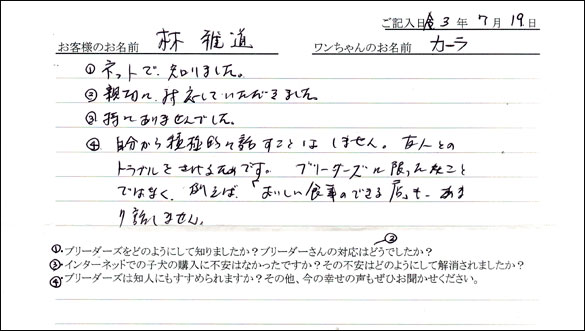 ご記入日 令 3 年 7 月 19 日
お客様のお名前 林 雅道 ワンちゃんのお名前 カーラ
① ネットで知りました。
② 親切に対応していただきました。
③ 特にありませんでした。
④ 自分から積極的に話すことはしません。友人との
トラブルをさけるためです。 ブリーダーズに限ったこと
ではなく、例えば、「おいしい食事のできる店」も、あま
り話しません。
②
①・ブリーダーズをどのようにして知りましたか？ブリーダーさんの対応はどうでしたか？
③・インターネットでの子犬の購入に不安はなかったですか？その不安はどのようにして解消されましたか？
④・ブリーダーズは知人にもすすめられますか？その他、今の幸せの声もぜひお聞かせください。